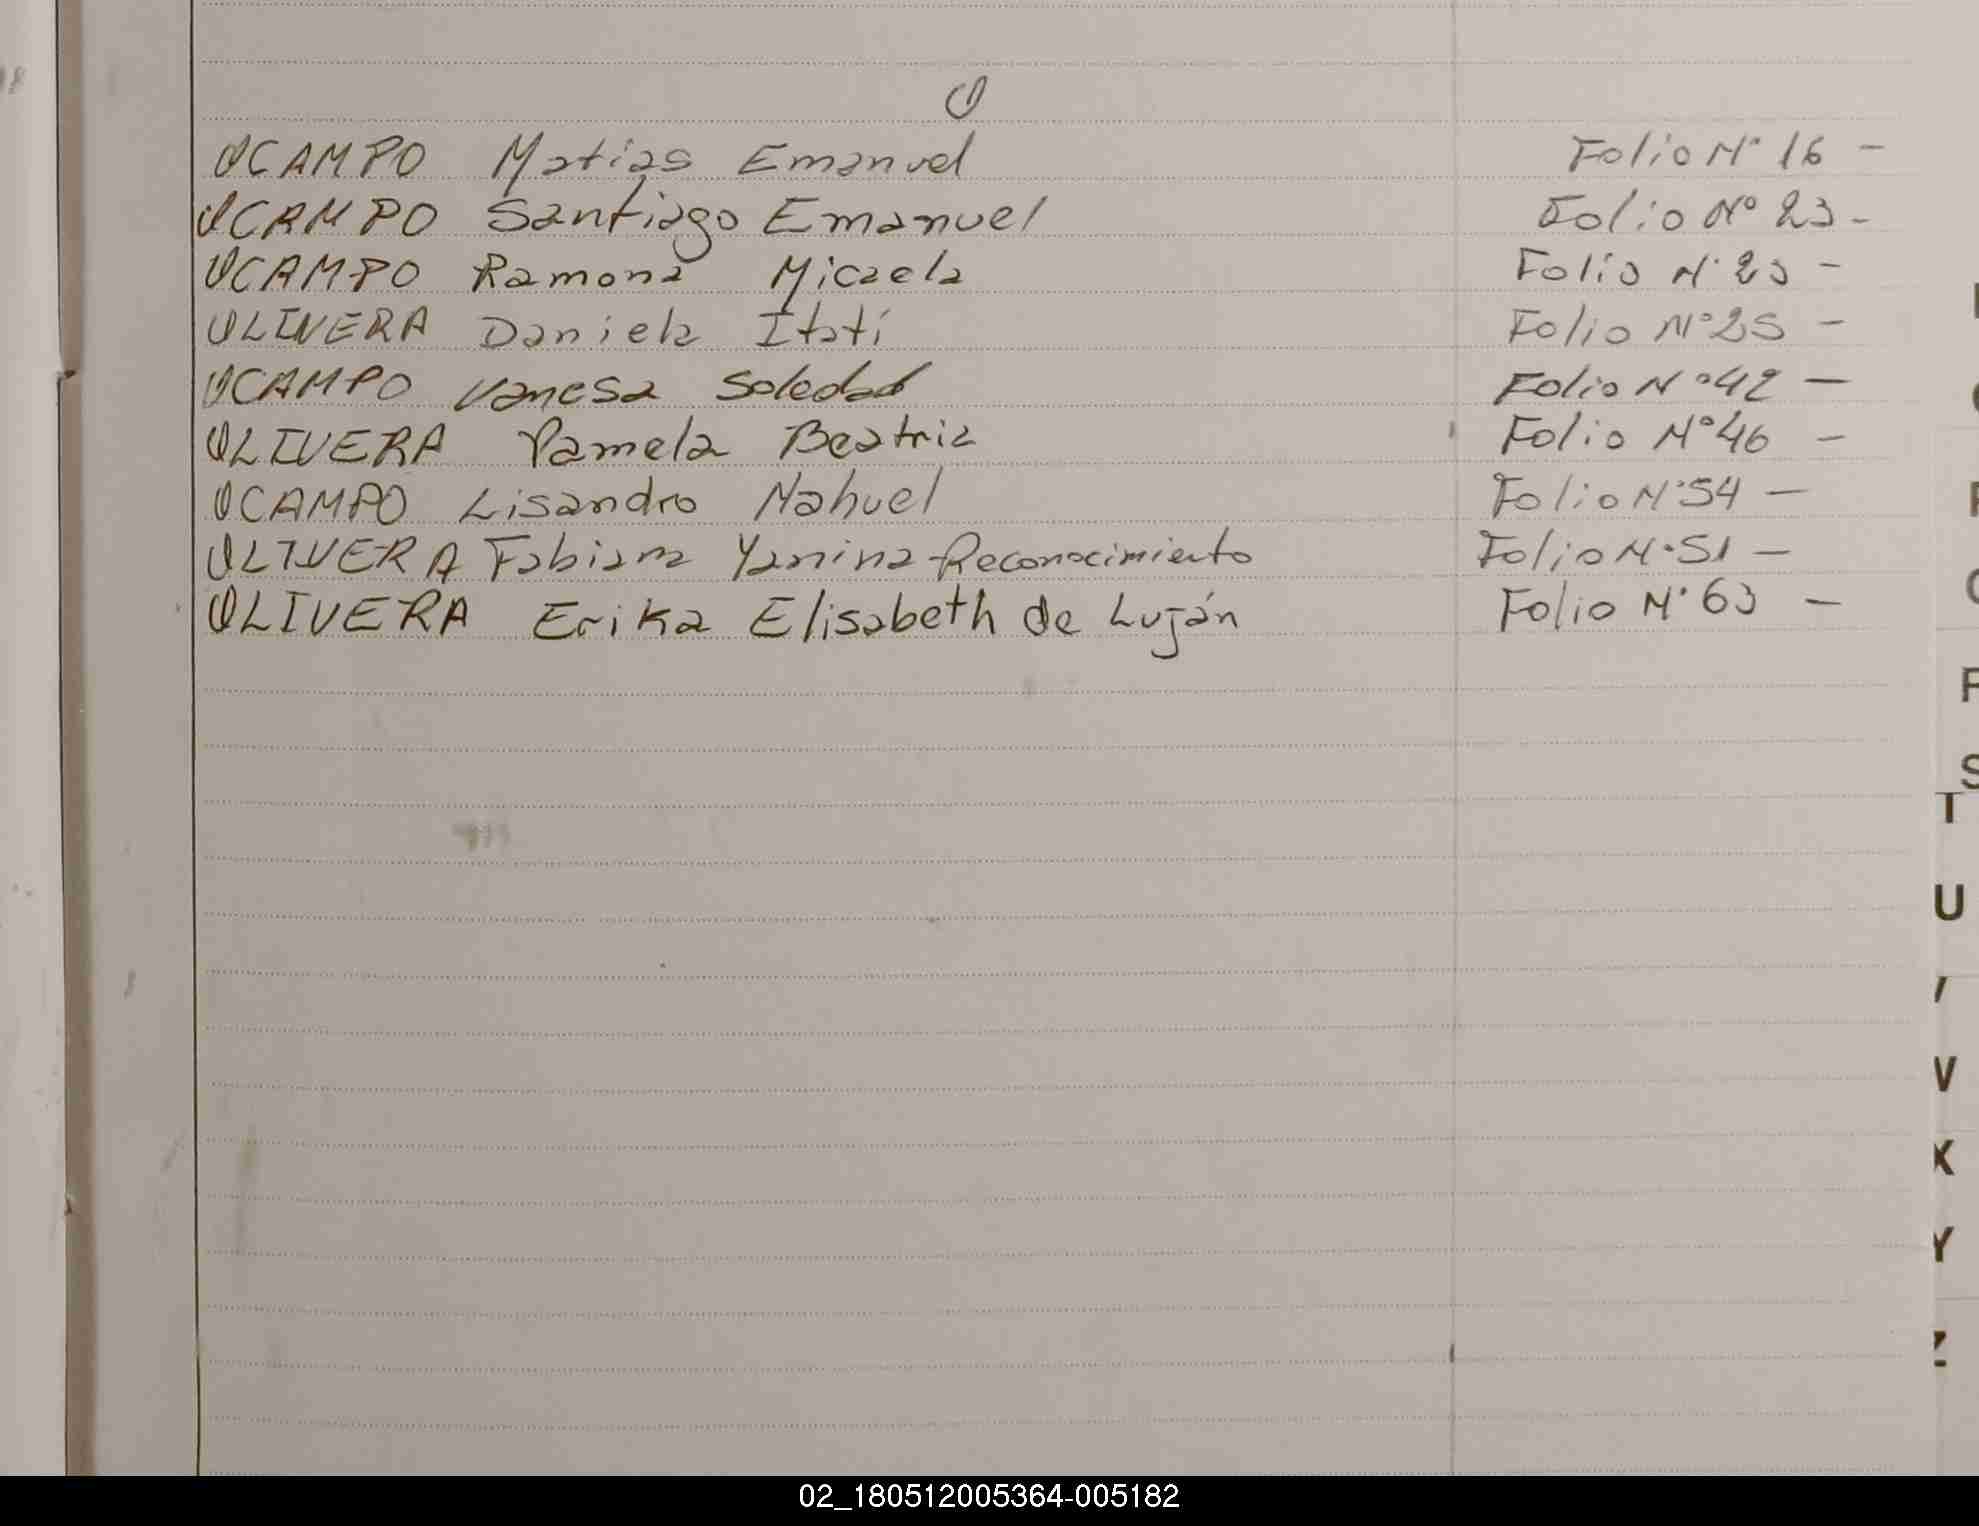 O
OCAMPO Matias Emanuel Folio Nº 16 -
OCAMPO Santiago Emanuel Folio Nº 23 -
OCAMPO Ramona Micaela Folio Nº 23 -
OLIVERA Daniela Itatí Folio Nº 25 -
OCAMPO Vanesa Soledad Folio Nº 42 -
OLIVERA Pamela Beatriz Folio Nº 46 -
OCAMPO Lisandro Nahuel Folio Nº 54 -
OLIVERA Fabiana Yanina - Reconocimiento Folio Nº 51 -
OLIVERA Erika Elisabeth de Luján Folio Nº 63 -
S
T
U
X
Y
Z
02_180512005364-005182